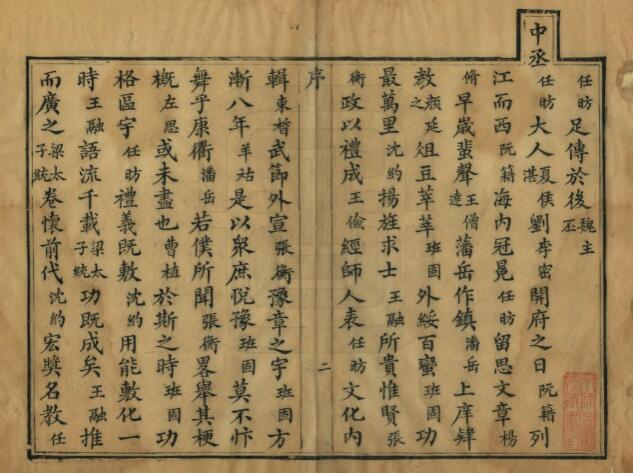 任昉足傳於後魏主丕
中丞任昉大人夏侯湛劉李密開府之日阮籍列
江而西阮籍海內冠冕任昉留思文章楊
脩早歲蜚聲王僧達藩岳作鎮潘岳上庠肄
教顏延之俎豆莘莘班固外綏百蠻班固功
最萬里沈約揚旌求士王融所貴惟賢張
衡政以禮成王儉經師人表任昉文化內
序
二
輯束晳武節外宣張衡豫章之宇班固方
漸八年羊祜是以衆庶悅豫班固莫不忭
舞乎康衢潘岳若僕所聞張衡畧舉其梗
概左思或未盡也曹植於斯之時班固功
格區宇任昉禮義既敷沈約用能敷化一
時王融語流千載梁太子統功既成矣王融推
而廣之梁太子統卷懷前代沈約宏奬名教任